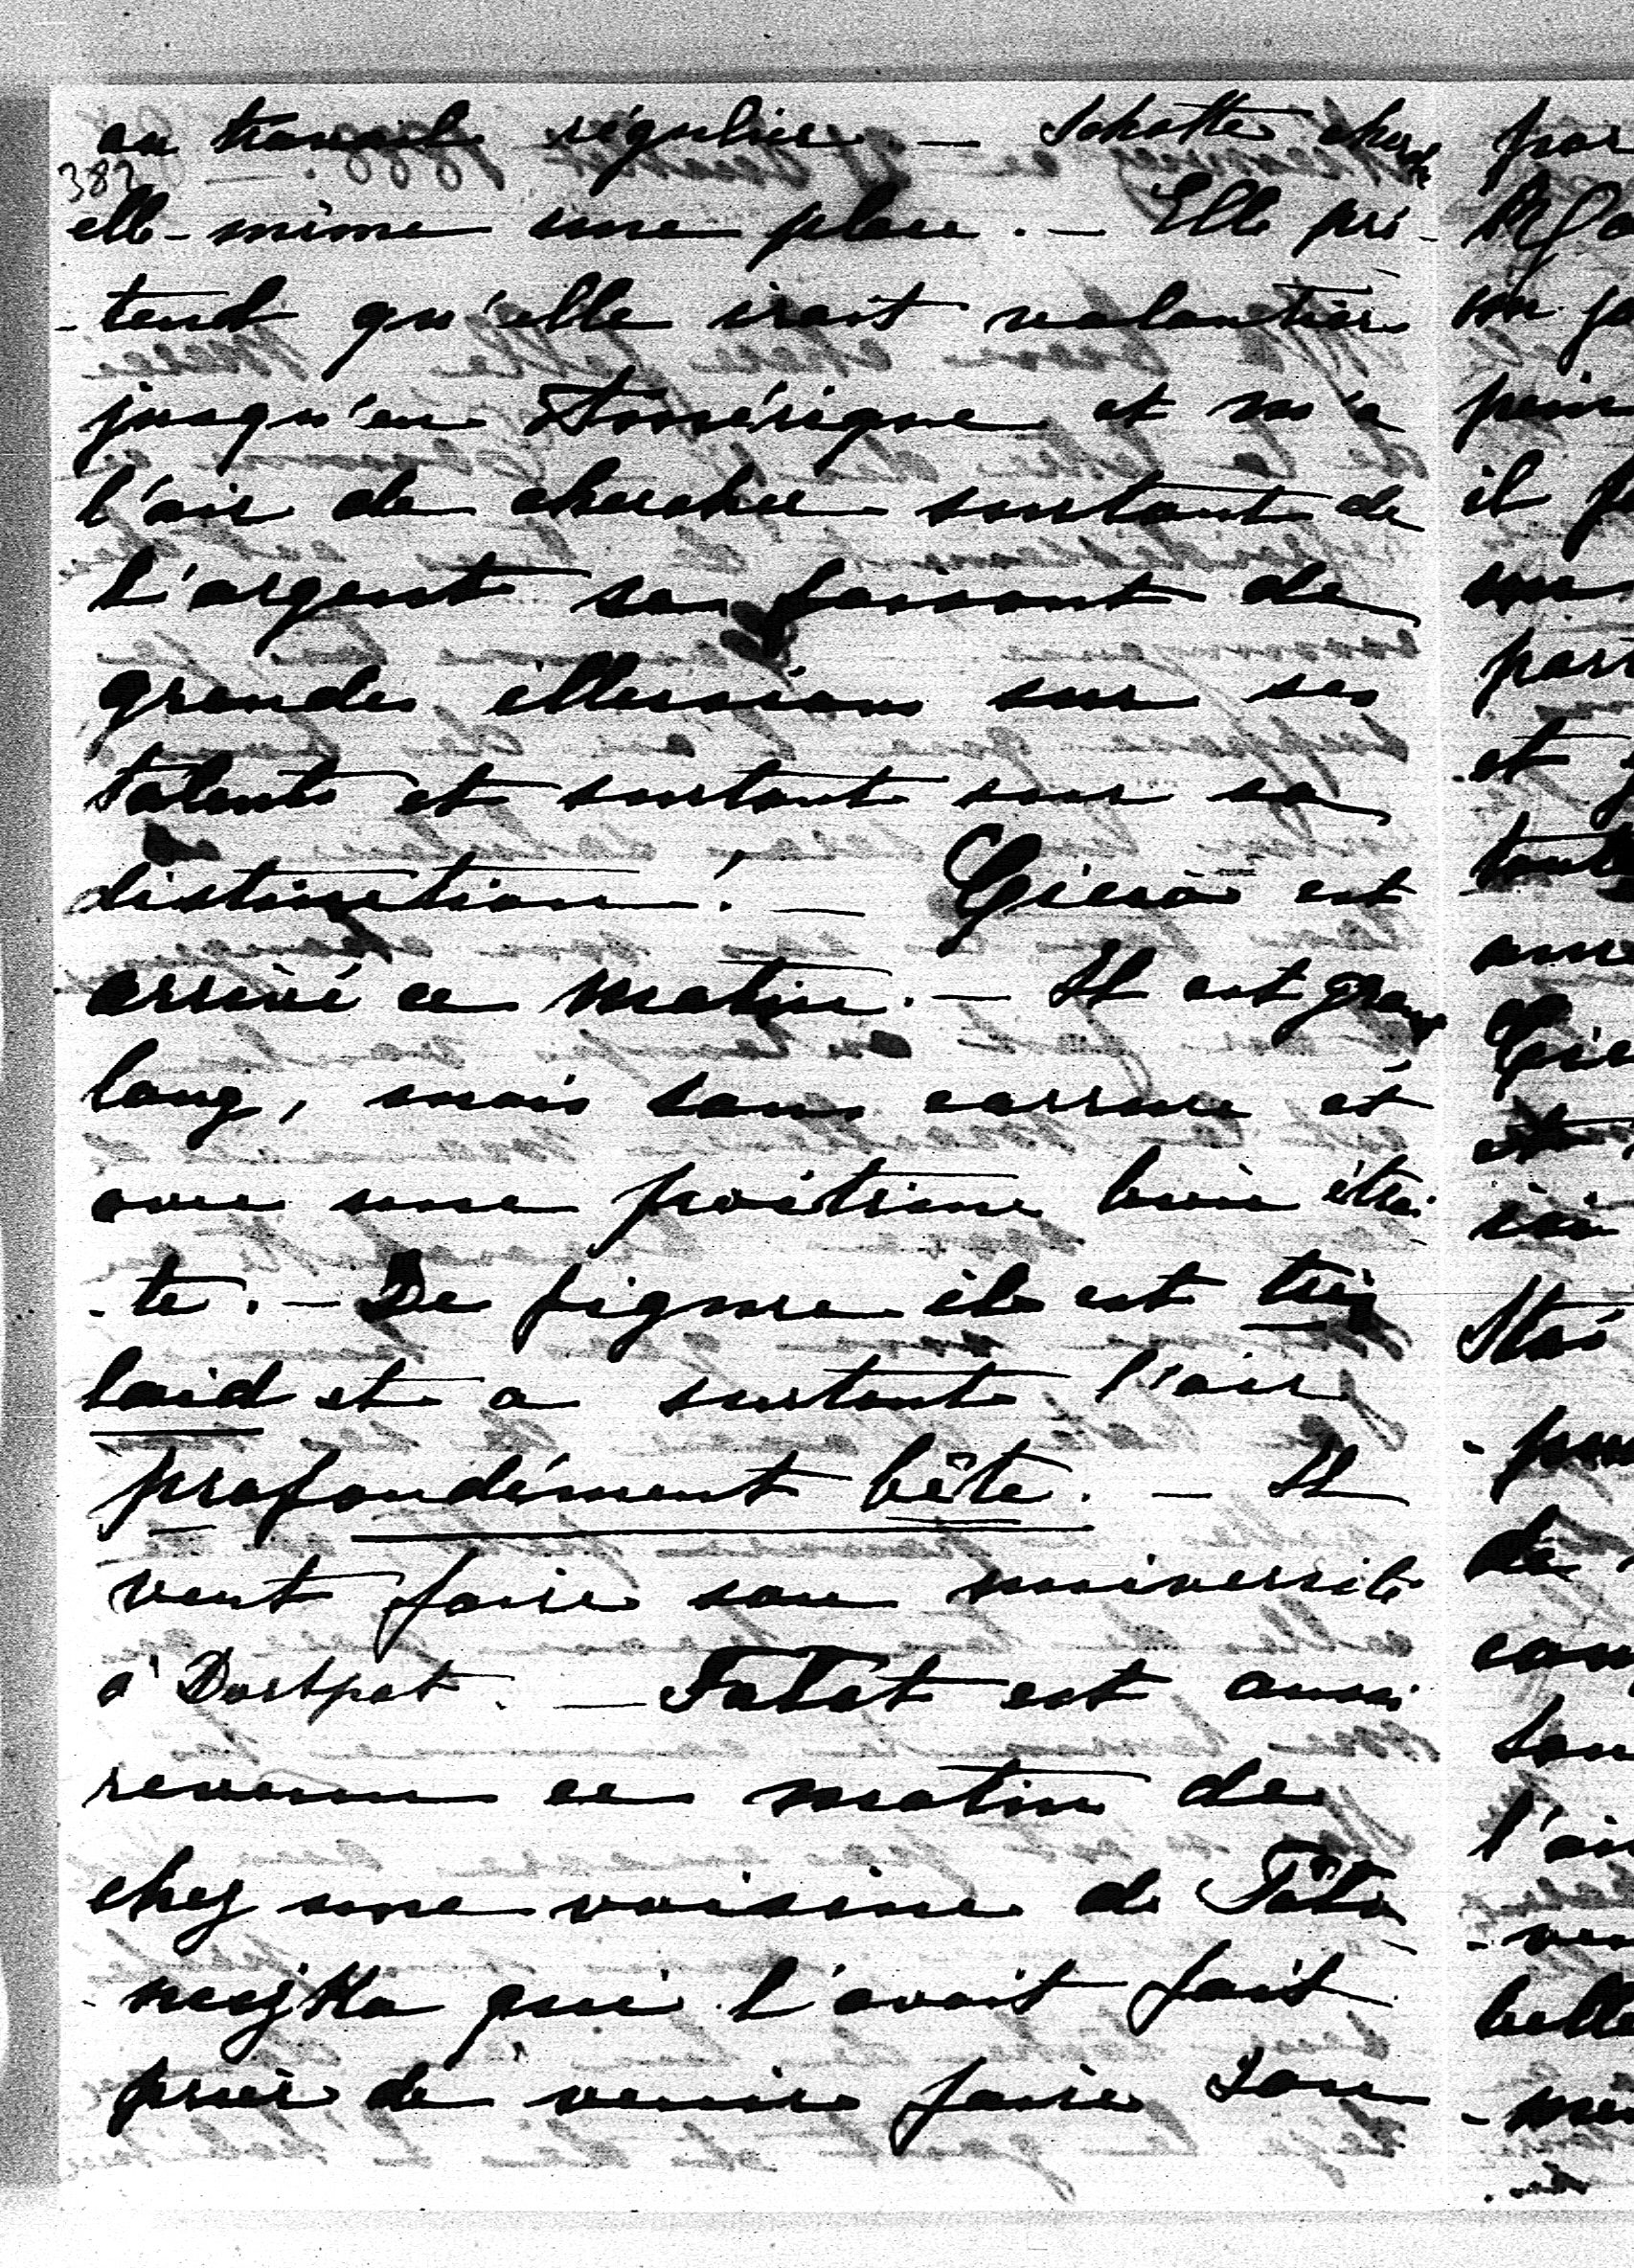 au travail régulier. — Schotte cherche
382
elle-même une place. — Elle pré-
-tend qu'elle irait volontier
jusqu'en Amérique et m'a
l'air de chercher surtout de
l'argent se faisant de
grandes illusions sur ses
talents et surtout sur sa
distinction! — est
arrivé ce matin. — Il est grand
long, mais sans carrure et
avec une poitrine bien étroi-
-te. — De figure il est très
laid et a surtout l'air
profondément bête. — Il
veut faire son université
à Dorpat. — est aussi
revenu ce matin de
chez une voisine de
qui l'avait fait
prier de venir faire son